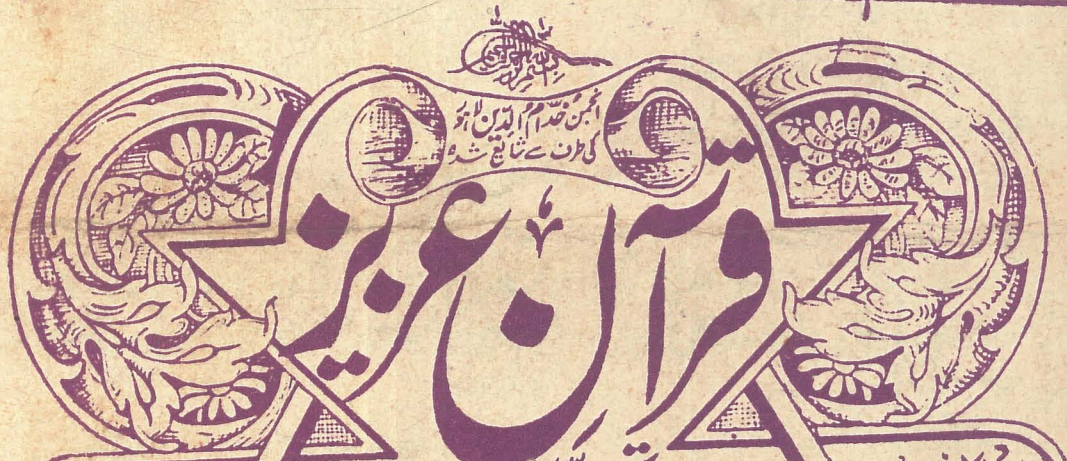 بسم اللہ الرحمن الرحیم
انجمن خدام الدین لاہور
کی طرف سے شائع شدہ
قرآن عزیز